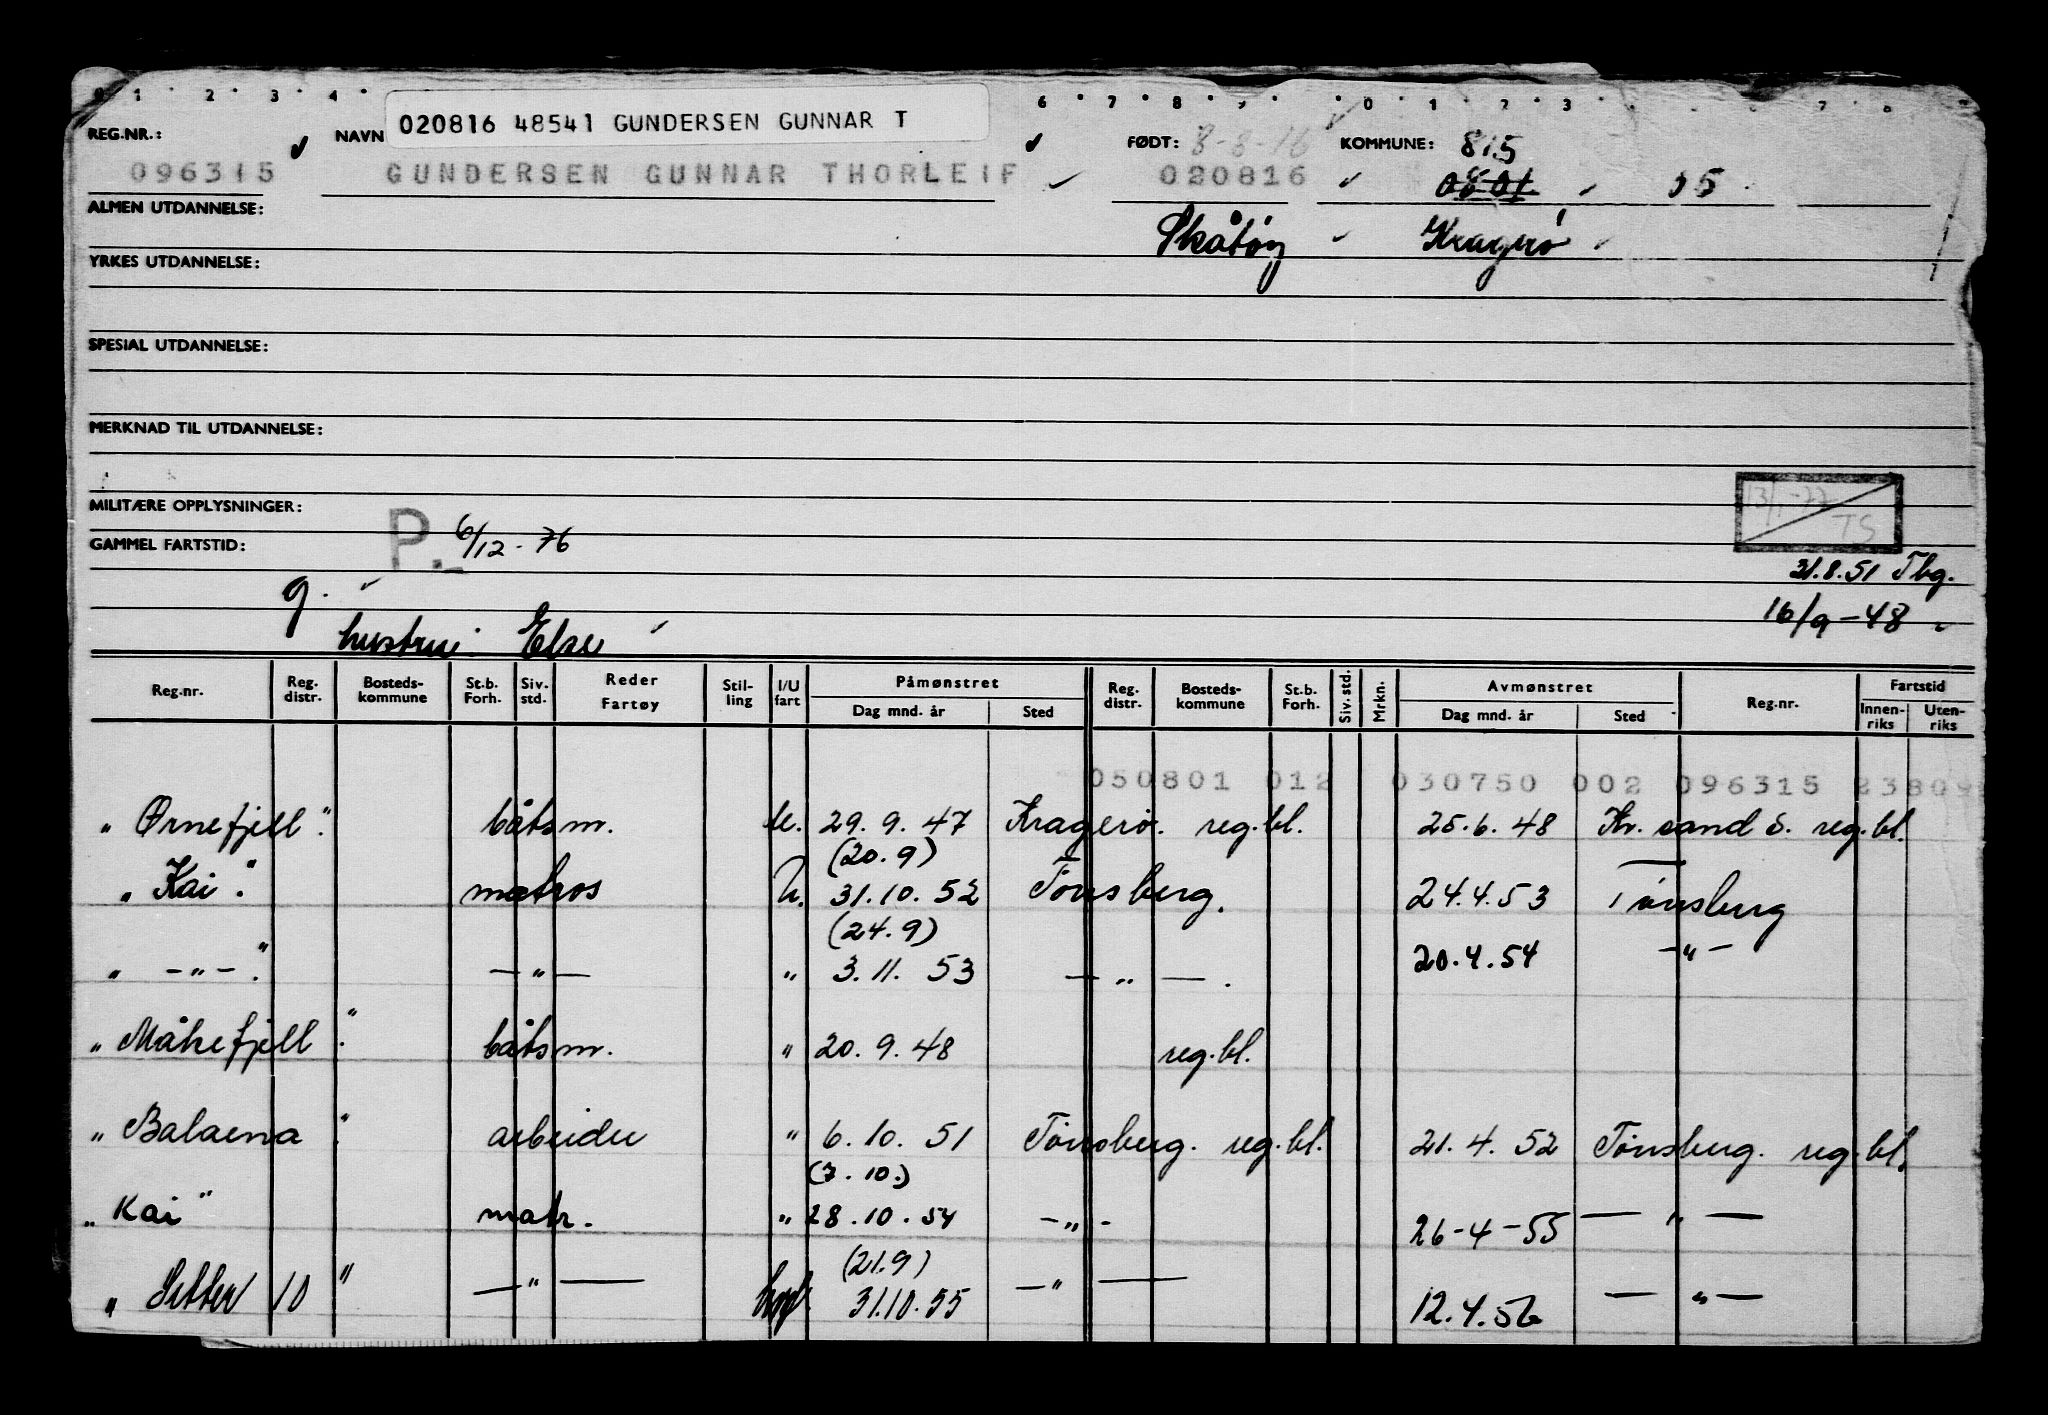 020816 48541 GUNDERSEN GUNNAR T
REG.NR.: NAVN FØDT: 8-8-16 KOMMUNE: 815
096315 GUNDERSEN GUNNAR THORLEIF 020816 0801 05
ALMEN UTDANNELSE: Skåtøy Kragerø
YRKES UTDANNELSE:
SPESIAL UTDANNELSE:
MERKNAD TIL UTDANNELSE:
13/1-77 TS
MILITÆRE OPPLYSNINGER:
GAMMEL FARTSTID: P. 6/12-76
31.8.51 Tbg.
g. 16/9-48
hustru: Else
Reg.nr. Reg. distr. Bosteds-kommune St.b. Forh. Siv. std. Reder Fartøy Stil-ling I/U fart Påmønstret Dag mnd. år Sted Reg. distr. Bosteds-kommune St.b. Forh. Siv. std. Mrkn. Avmønstret Dag mnd. år Sted Reg.nr. Fartstid Innen-riks Uten-riks
050801 012 030750 002 096315 23809
"Ørnefjell". båtsm. U. 29.9.47 Kragerø. reg.bl. 25.6.48 Kr.sand S. reg.bl.
(20.9)
"Kai". matros U. 31.10.52 Tønsberg. 24.4.53 Tønsberg
(24.9)
" -"- ". -"- " 3.11.53 -"-. 20.4.54 -"-
"Måkefjell". båtsm. " 20.9.48 reg.bl.
"Balaena". arbeider " 6.10.51 Tønsberg. reg.bl. 21.4.52 Tønsberg. reg.bl.
(7.10.)
"Kai" matr. " 28.10.54 -"- 26-4-55 -"-
(21.9)
"Setter 10" -"- hval. 31.10.55 -"- 12.4.56 -"-